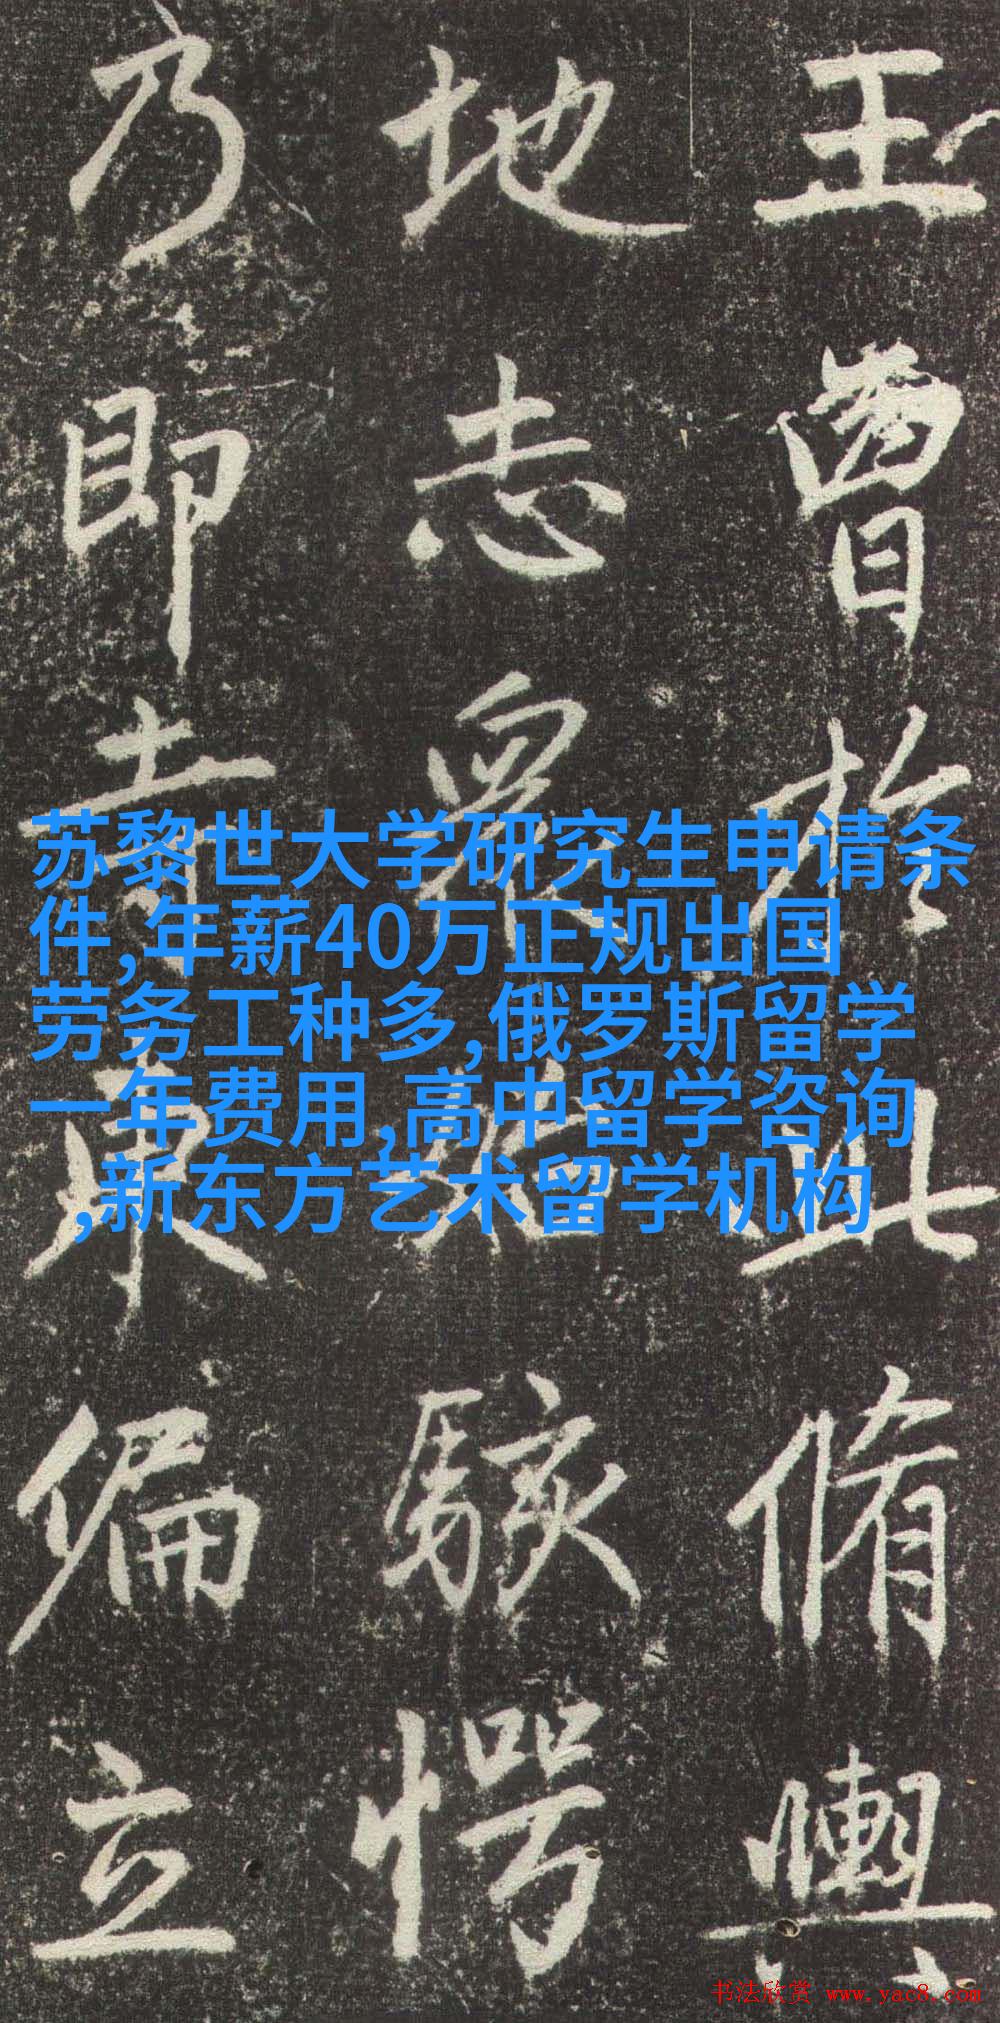 王曾於此脩輿
地志衆始駭愕
乃即寺東偏立
苏黎世大学研究生申请条
件,年薪40万正规出国
劳务工种多,俄罗斯留学
一年费用,高中留学咨询
,新东方艺术留学机构
书法欣赏 www.yac8.com